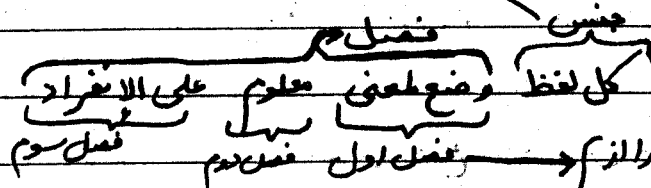 جنس
فصل
كل لفظ وضع لمعنى معلوم على الانفراد
فصل اول فصل دوم فصل سوم